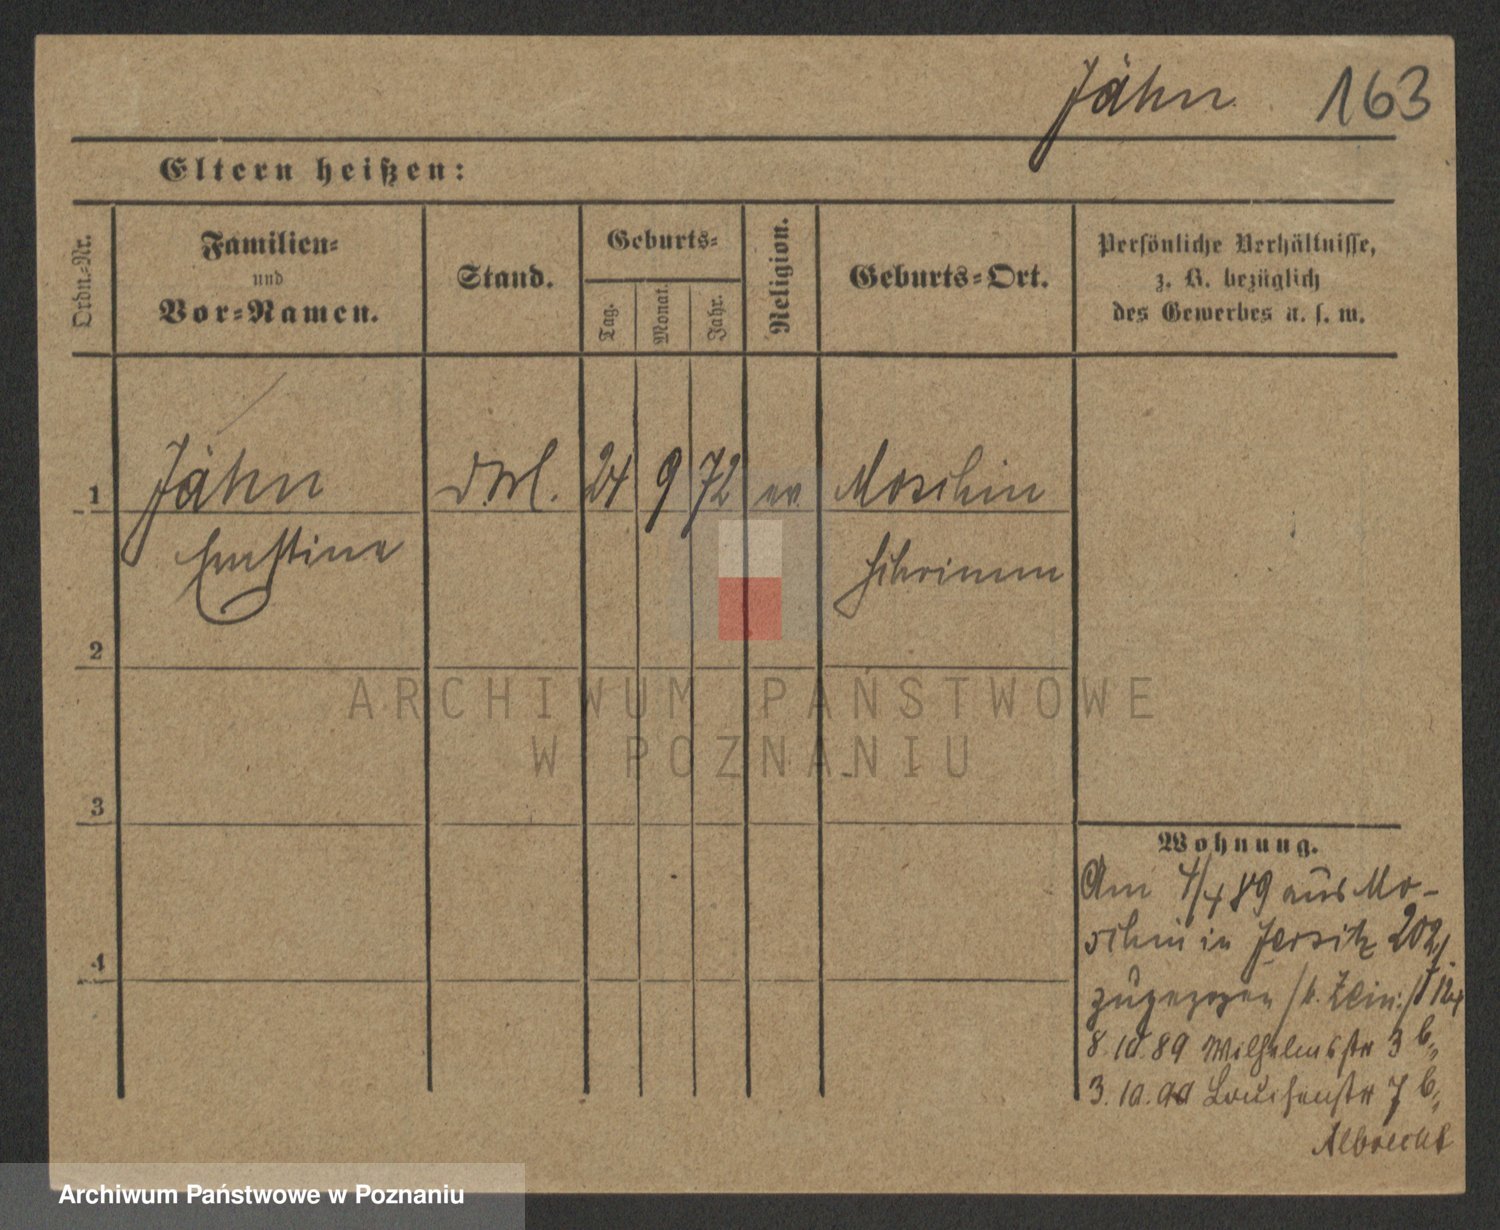 Jähn 163
Eltern heißen:
Ordn.=Nr.
Familien=
und
Vor=Namen.
Stand.
Geburts=
Tag.
Monat.
Jahr.
Religion.
Geburts=Ort.
Persönliche Verhältnisse,
z. B. bezüglich
des Gewerbes u. s. w.
1 Jähn 24 9 72 ev. Moschin
Ernstine Schrimm
2
ARCHIWUM PAŃSTWOWE
W POZNANIU
3
4
Wohnung.
Am 4/4 89 aus Mo-
schin in Jersitz 202
zugezogen
8. 10. 89 Wilhelmsstr 3 b.
3. 10. 90 Louisenstr 7 b.
Albrecht
Archiwum Państwowe w Poznaniu